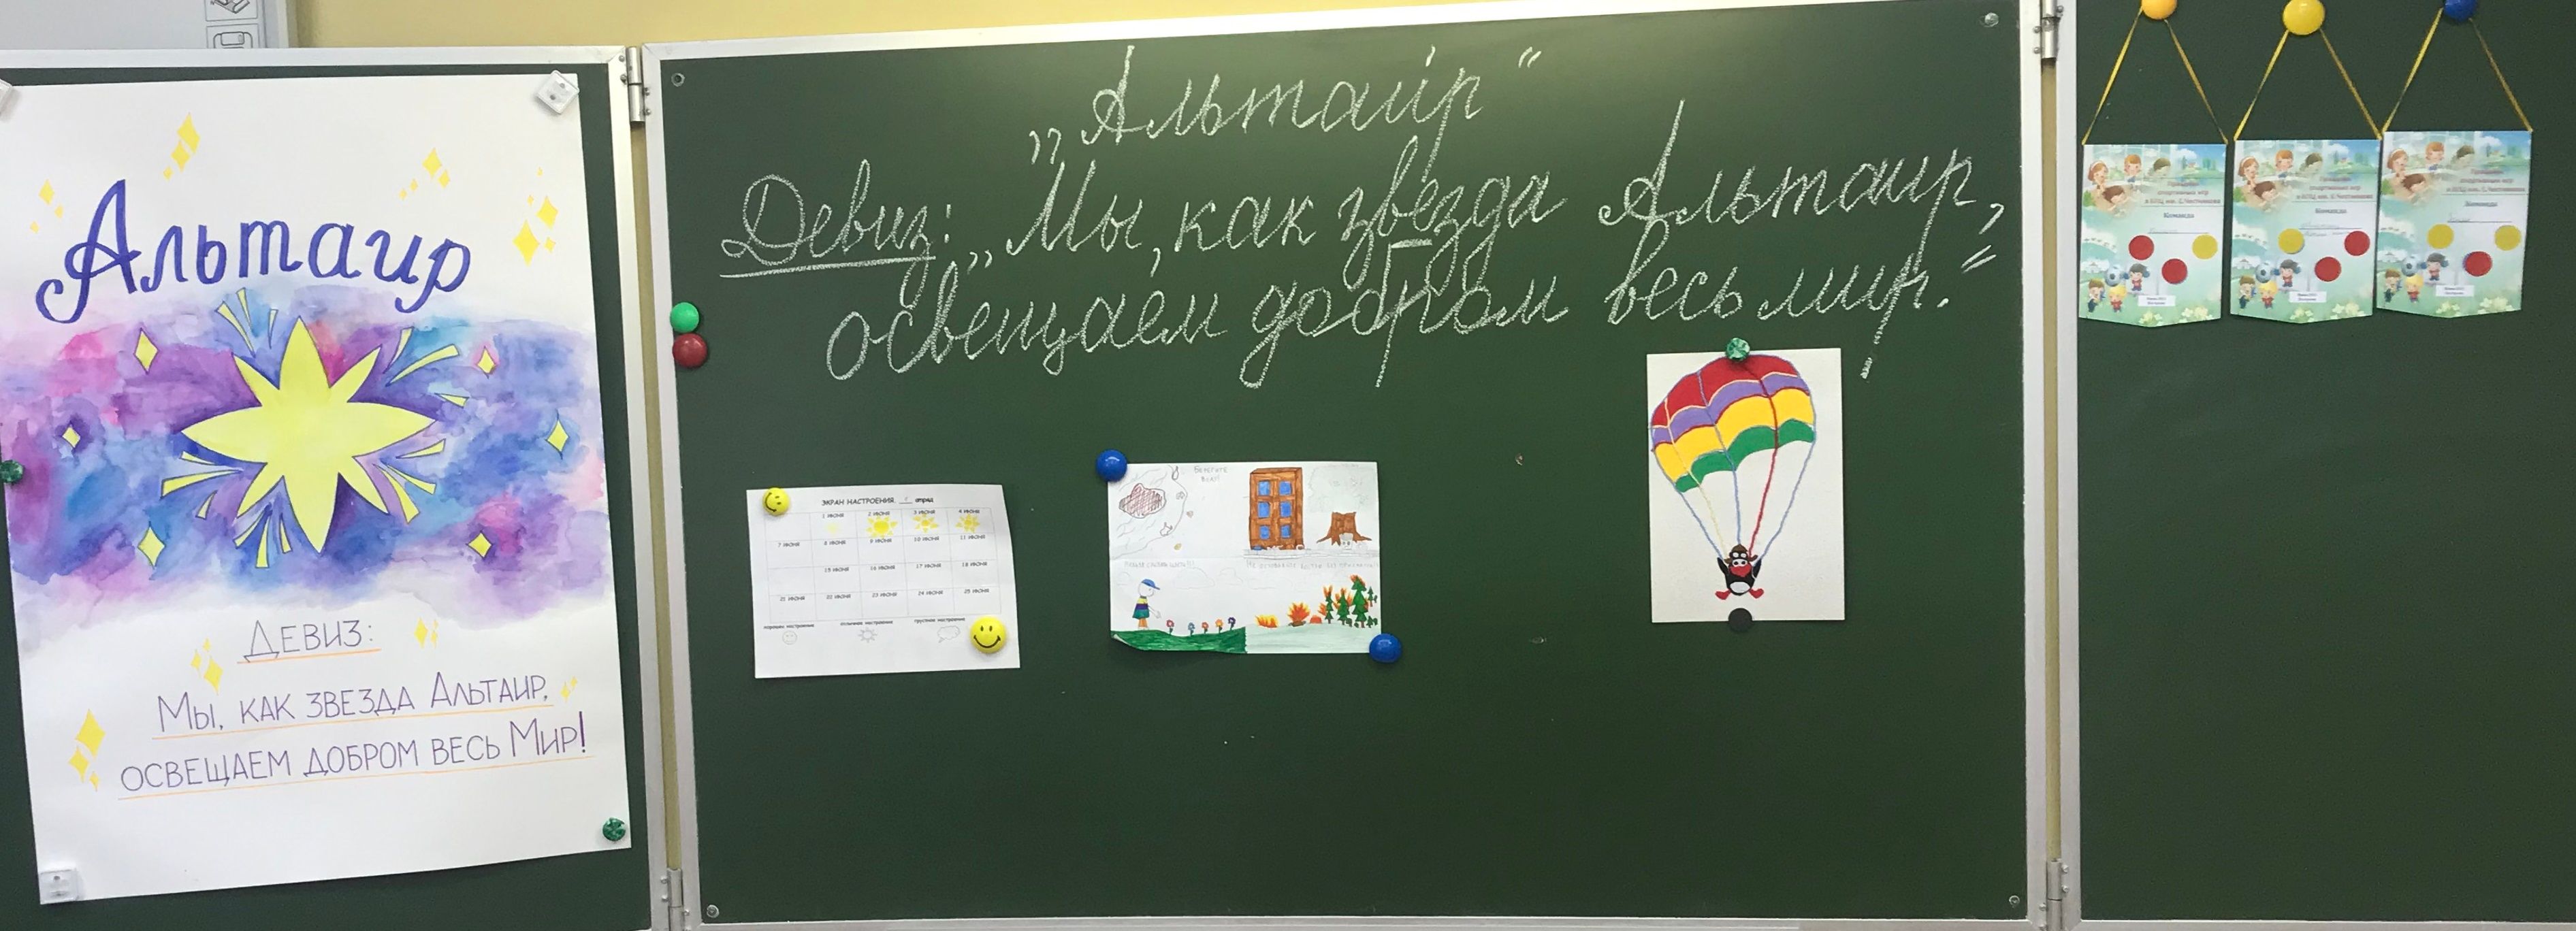 Альтаир
Девиз:
Мы, как звезда Альтаир,
освещаем добром весь Мир!
„Альтаир“
Девиз: „Мы, как звезда Альтаир,
освещаем добром весь мир.“
ЭКРАН НАСТРОЕНИЯ отряд
1 июня 2 июня 3 июня 4 июня
7 июня 8 июня 9 июня 10 июня 11 июня
15 июня 16 июня 17 июня 18 июня
21 июня 22 июня 23 июня 24 июня 25 июня
хорошее настроение отличное настроение грустное настроение
Берегите
Команда
Команда
Команда